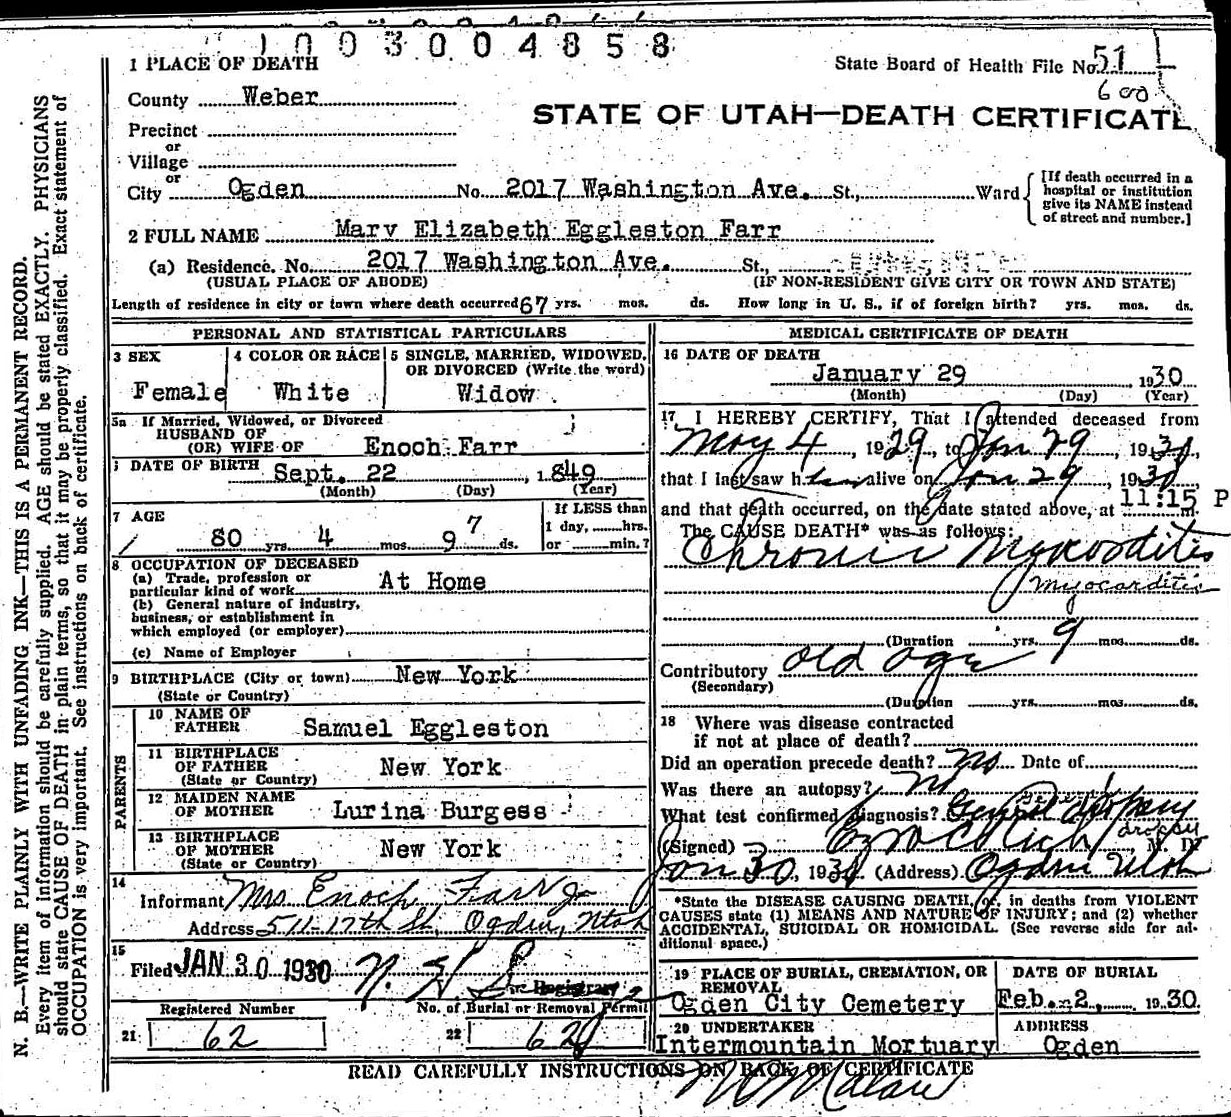 1003004858
1 PLACE OF DEATH
State Board of Health File No. 51
600
County Weber
STATE OF UTAH—DEATH CERTIFICATE
Precinct
or
Village
or
City Ogden No. 2017 Washington Ave. St., Ward
[If death occurred in a
hospital or institution
give its NAME instead
of street and number.]
2 FULL NAME Mary Elizabeth Eggleston Farr
(a) Residence. No. 2017 Washington Ave. St.,
(USUAL PLACE OF ABODE) (IF NON-RESIDENT GIVE CITY OR TOWN AND STATE)
Length of residence in city or town where death occurred 67 yrs. mos. ds. How long in U. S., if of foreign birth? yrs. mos. ds.
PERSONAL AND STATISTICAL PARTICULARS
3 SEX 4 COLOR OR RACE 5 SINGLE, MARRIED, WIDOWED,
OR DIVORCED (Write the word)
Female White Widow.
5a If Married, Widowed, or Divorced
HUSBAND OF
(OR) WIFE OF Enoch Farr
DATE OF BIRTH Sept. 22, 1849
(Month) (Day) (Year)
7 AGE
If LESS than
1 day, hrs.
or min.?
7
80 yrs. 4 mos. 9 ds.
8 OCCUPATION OF DECEASED
(a) Trade, profession or
particular kind of work At Home
(b) General nature of industry,
business, or establishment in
which employed (or employer)
(c) Name of Employer
9 BIRTHPLACE (City or town) New York
(State or Country)
PARENTS
10 NAME OF
FATHER Samuel Eggleston
11 BIRTHPLACE
OF FATHER New York
(State or Country)
12 MAIDEN NAME
OF MOTHER Lurina Burgess
13 BIRTHPLACE
OF MOTHER New York
(State or Country)
14
Informant Mrs Enoch Farr Jr
Address 511-17th St, Ogden, Utah
15
Filed JAN 30 1930
Registrar
Registered Number No. of Burial or Removal Permit
21 62 22 620
MEDICAL CERTIFICATE OF DEATH
16 DATE OF DEATH
January 29 1930
(Month) (Day) (Year)
17 I HEREBY CERTIFY, That I attended deceased from
May 4, 1929, to Jan 29, 1930,
that I last saw her alive on Jan 29, 1930
and that death occurred, on the date stated above, at 11:15 P m.
The CAUSE DEATH* was as follows:
Chronic Myocorditis
myocarditis
(Duration yrs. 9 mos. ds.
Contributory old age
(Secondary)
(Duration yrs. mos. ds.
18 Where was disease contracted
if not at place of death?
Did an operation precede death? No Date of
Was there an autopsy? No
What test confirmed diagnosis? General dropsy
dropsy
(Signed) M. D.
Jan 30, 1930 (Address) Ogden Utah
*State the DISEASE CAUSING DEATH, or, in deaths from VIOLENT
CAUSES state (1) MEANS AND NATURE OF INJURY; and (2) whether
ACCIDENTAL, SUICIDAL OR HOMICIDAL. (See reverse side for ad-
ditional space.)
19 PLACE OF BURIAL, CREMATION, OR
REMOVAL
DATE OF BURIAL
Ogden City Cemetery Feb. 2, 1930.
20 UNDERTAKER ADDRESS
Intermountain Mortuary Ogden
READ CAREFULLY INSTRUCTIONS ON BACK OF CERTIFICATE
N. B.—WRITE PLAINLY WITH UNFADING INK—THIS IS A PERMANENT RECORD.
Every item of information should be carefully supplied. AGE should be stated EXACTLY. PHYSICIANS
should state CAUSE OF DEATH in plain terms, so that it may be properly classified. Exact statement of
OCCUPATION is very important. See instructions on back of certificate.